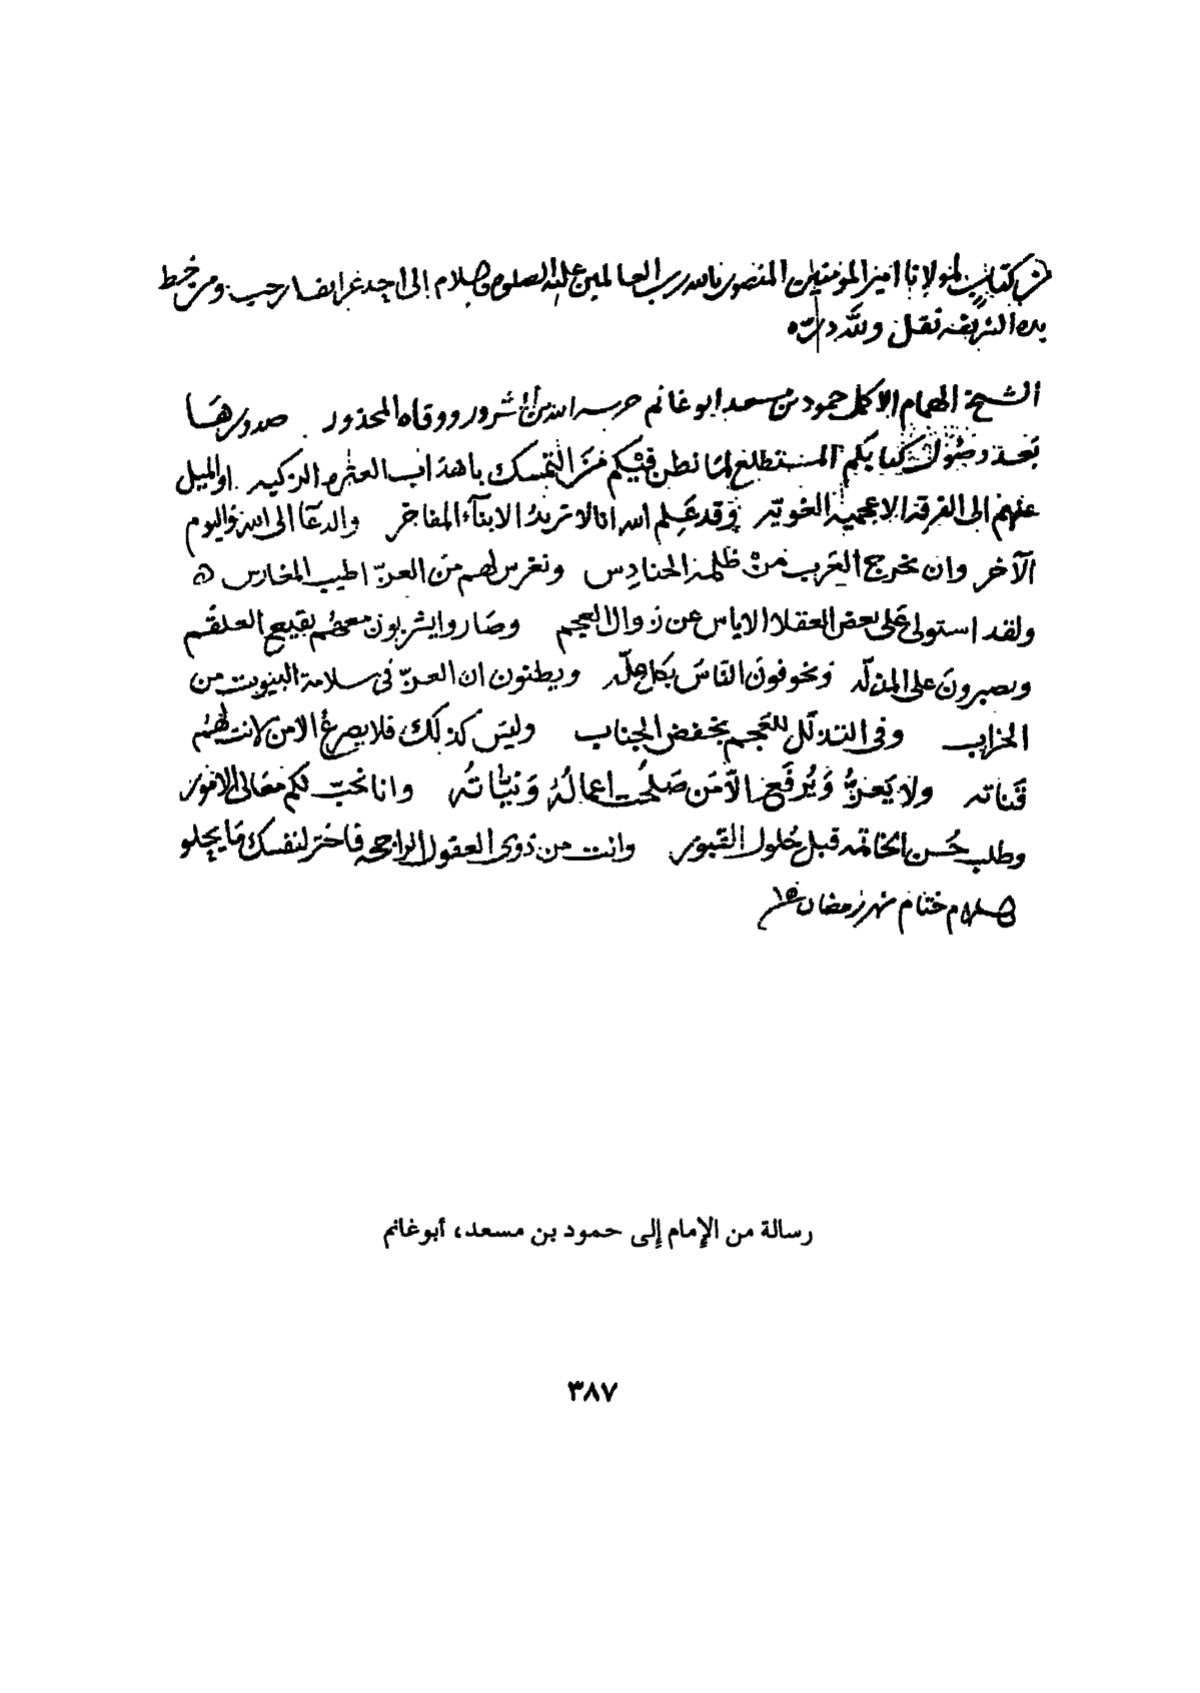 من كتاب لمولانا امير المومنين المنصور بالله رب العالمين عليه الصلوة والسلام إلى احد عرائف ارحب ومن خط
يده الشريفه نقل ولله درّه
الشيخ الهمام الاكمل حمود بن مسعد ابو غانم حرسه الله من الشرور ووقاه المحذور صدورها
بَعد وصول كتابكم المستطلع لما نظن فيكم من التمسك باهداب العتره الزكيه او الميل
عنهم الى الفرقة الاعجمية الغويه وقد عَلم الله انا لا نريد الا بناء المفاخر والدعَا الى الله واليوم
الآخر وان نخرج العَرب منْ ظلمة الحنادِس ونغرس لهم منَ العزّ اطيب المغارس ه
ولقد استولى عَلى بعض العقلا الاياس عن زوال العجم وصَاروا يشربون معهُم بقيع العلقم
ويصبرونَ على المذلّه ويخوفونَ الناسَ بكل علّه ويظنون ان العزّ في سلامة البيوت من
الخراب وفي التذلّل للعَجم بخفض الجناب وليسَ كذلك فلا يصرعُ الا من لانت لهُم
قَناته ولا يَعزُّ وَيُرفَع الاّ مَن صَلحُت اعمالهُ وَنيّاتُه وانا نحبّ لكم مَعَالى الامور
وطلب حُسن الخاتمه قبل حُلول القبور وانت من ذوى العقول الراجحه فاختر لنفسك مَا يحلو
والسلام ختام شهر رمضان
رسالة من الإمام إلى حمود بن مسعد، أبوغانم
٣٨٧